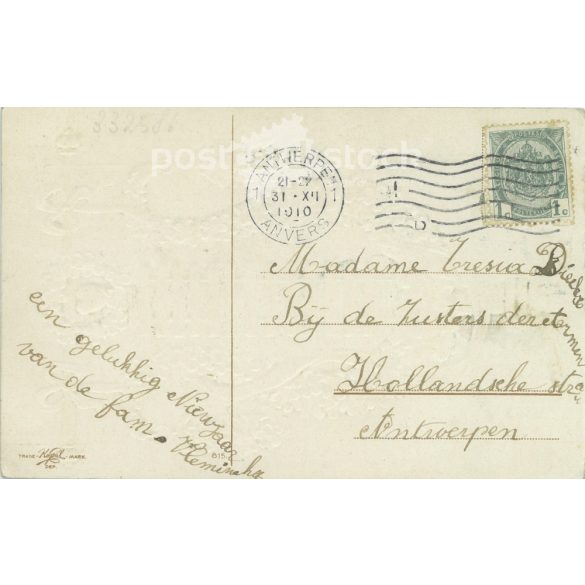 832586
postkstock
ANTWERPEN
21-22
31 · XII
1910
ANVERS
1c 1c
Madame Tresia
Bij de Zusters der
Hollandsche stra
Antwerpen
een gelukkig Niewjaar
van de fam.
TRADE - MARK.
615